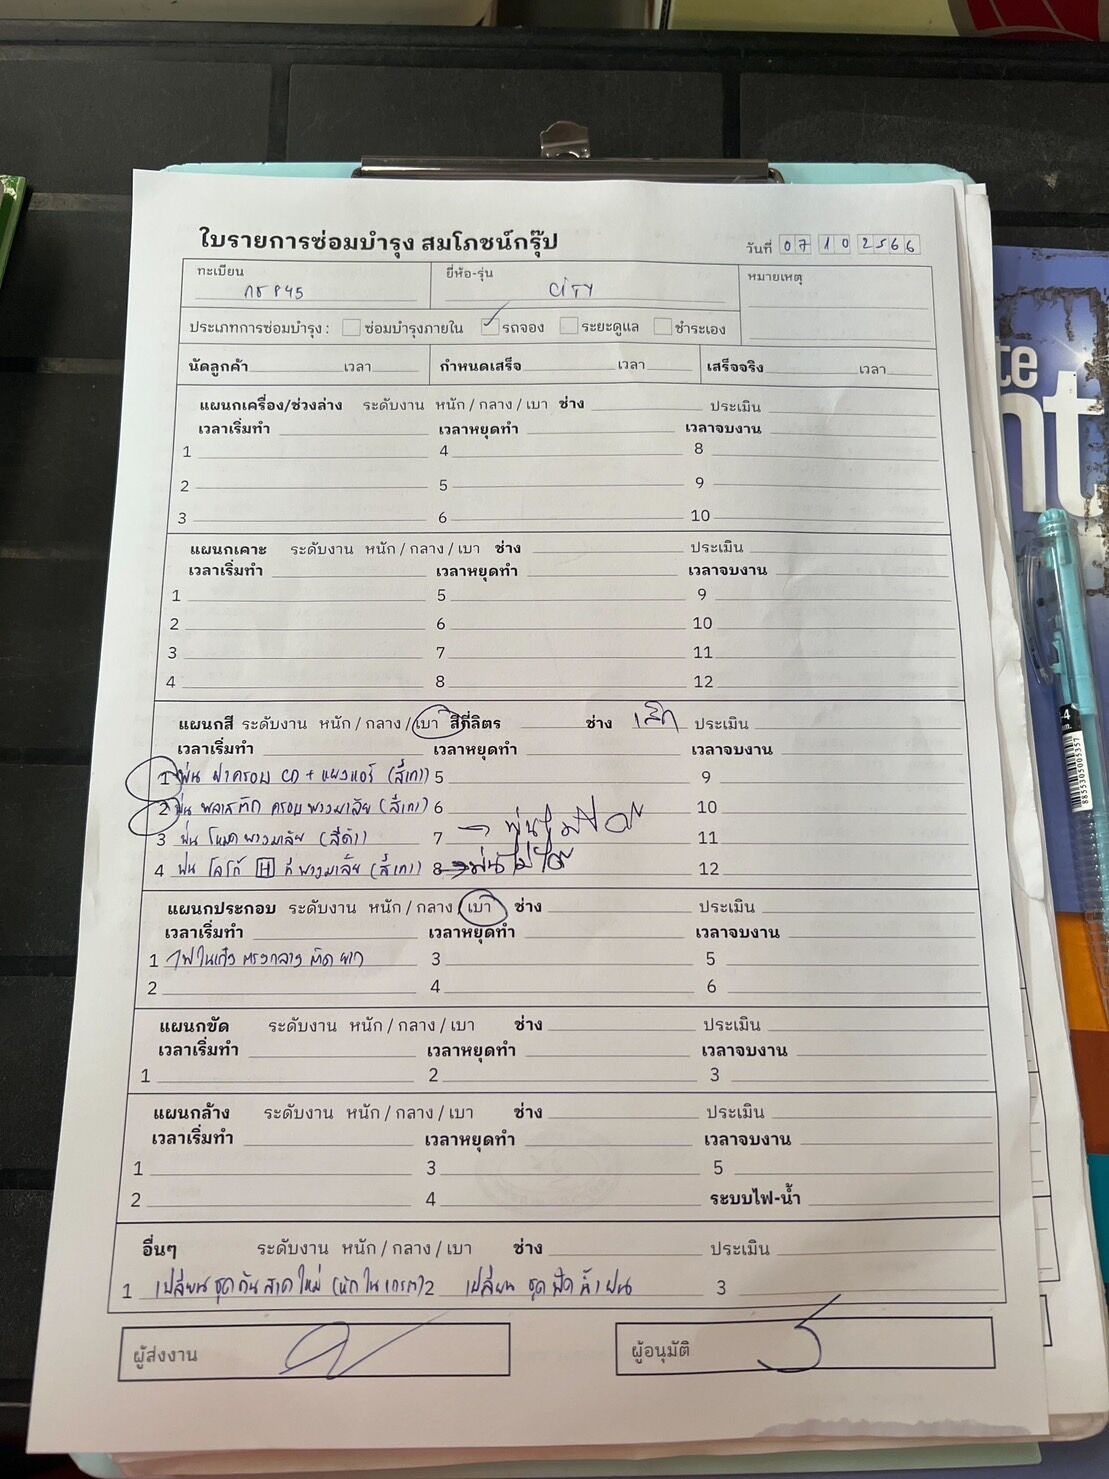 ใบรายการซ่อมบำรุง สมโภชน์กรุ๊ป
วันที่ 07 10 2566
ทะเบียน
ยี่ห้อ-รุ่น CITY
หมายเหตุ
ประเภทการซ่อมบำรุง : ซ่อมบำรุงภายใน รถจอง ระยะดูแล ชำระเอง
นัดลูกค้า เวลา กำหนดเสร็จ เวลา เสร็จจริง เวลา
แผนกเครื่อง/ช่วงล่าง ระดับงาน หนัก / กลาง / เบา ช่าง ประเมิน
เวลาเริ่มทำ เวลาหยุดทำ เวลาจบงาน
1 4 8
2 5 9
3 6 10
แผนกเคาะ ระดับงาน หนัก / กลาง / เบา ช่าง ประเมิน
เวลาเริ่มทำ เวลาหยุดทำ เวลาจบงาน
1 5 9
2 6 10
3 7 11
4 8 12
แผนกสี ระดับงาน หนัก / กลาง / เบา สีกี่ลิตร ช่าง ประเมิน
เวลาเริ่มทำ เวลาหยุดทำ เวลาจบงาน
1 พ่น ฝาครอบ CD + แผงแอร์ (สีเทา) 5 9
2 พ่น พลาสติก ครอบพวงมาลัย (สีเทา) 6 10
3 พ่น โหมดพวงมาลัย (สีดำ) 7 พ่นไม่ได้ 11
4 พ่น โลโก้ H ที่พวงมาลัย (สีเทา) 8 พ่นไม่ได้ 12
แผนกประกอบ ระดับงาน หนัก / กลาง / เบา ช่าง ประเมิน
เวลาเริ่มทำ เวลาหยุดทำ เวลาจบงาน
1 ไฟในเก๋ง ตรงกลาง ติดยาก 3 5
2 4 6
แผนกขัด ระดับงาน หนัก / กลาง / เบา ช่าง ประเมิน
เวลาเริ่มทำ เวลาหยุดทำ เวลาจบงาน
1 2 3
แผนกล้าง ระดับงาน หนัก / กลาง / เบา ช่าง ประเมิน
เวลาเริ่มทำ เวลาหยุดทำ เวลาจบงาน
1 3 5
2 4 ระบบไฟ-น้ำ
อื่นๆ ระดับงาน หนัก / กลาง / เบา ช่าง ประเมิน
1 เปลี่ยนชุดกันสาดใหม่ 2 เปลี่ยน ชุด ฉีดน้ำฝน 3
ผู้ส่งงาน
ผู้อนุมัติ
8855305005357